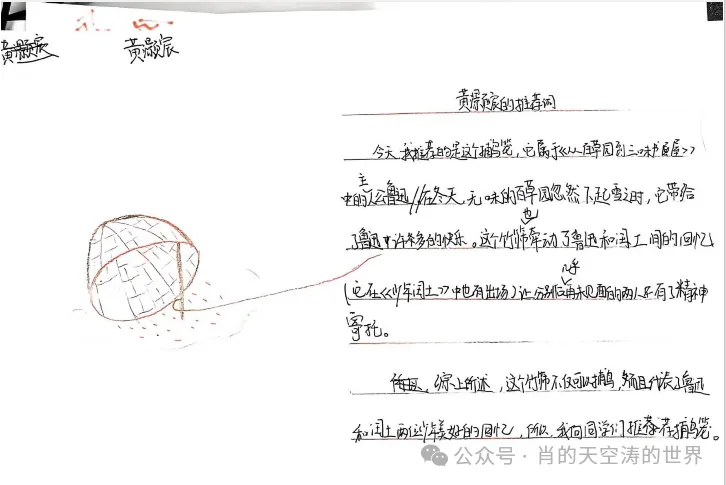 黄灏宸
黄灏宸
黄灏宸的推荐词
今天我推荐的是这个捕鸟笼,它属于《从百草园到三味书屋》
中的主人公鲁迅//在冬天,无味的百草园忽然下起雪之时,它带给
了鲁迅许许多多的快乐。这个竹筛也牵动了鲁迅和闰土间的回忆
(它在《少年闰土》中也有出场)让分别后再未见面的两人还有了精神
寄托。
综上所述,这个竹筛不仅可以捕鸟,而且代表了鲁迅
和闰土两位少年美好的回忆,所以,我向同学们推荐捕鸟笼。
公众号·肖的天空涛的世界